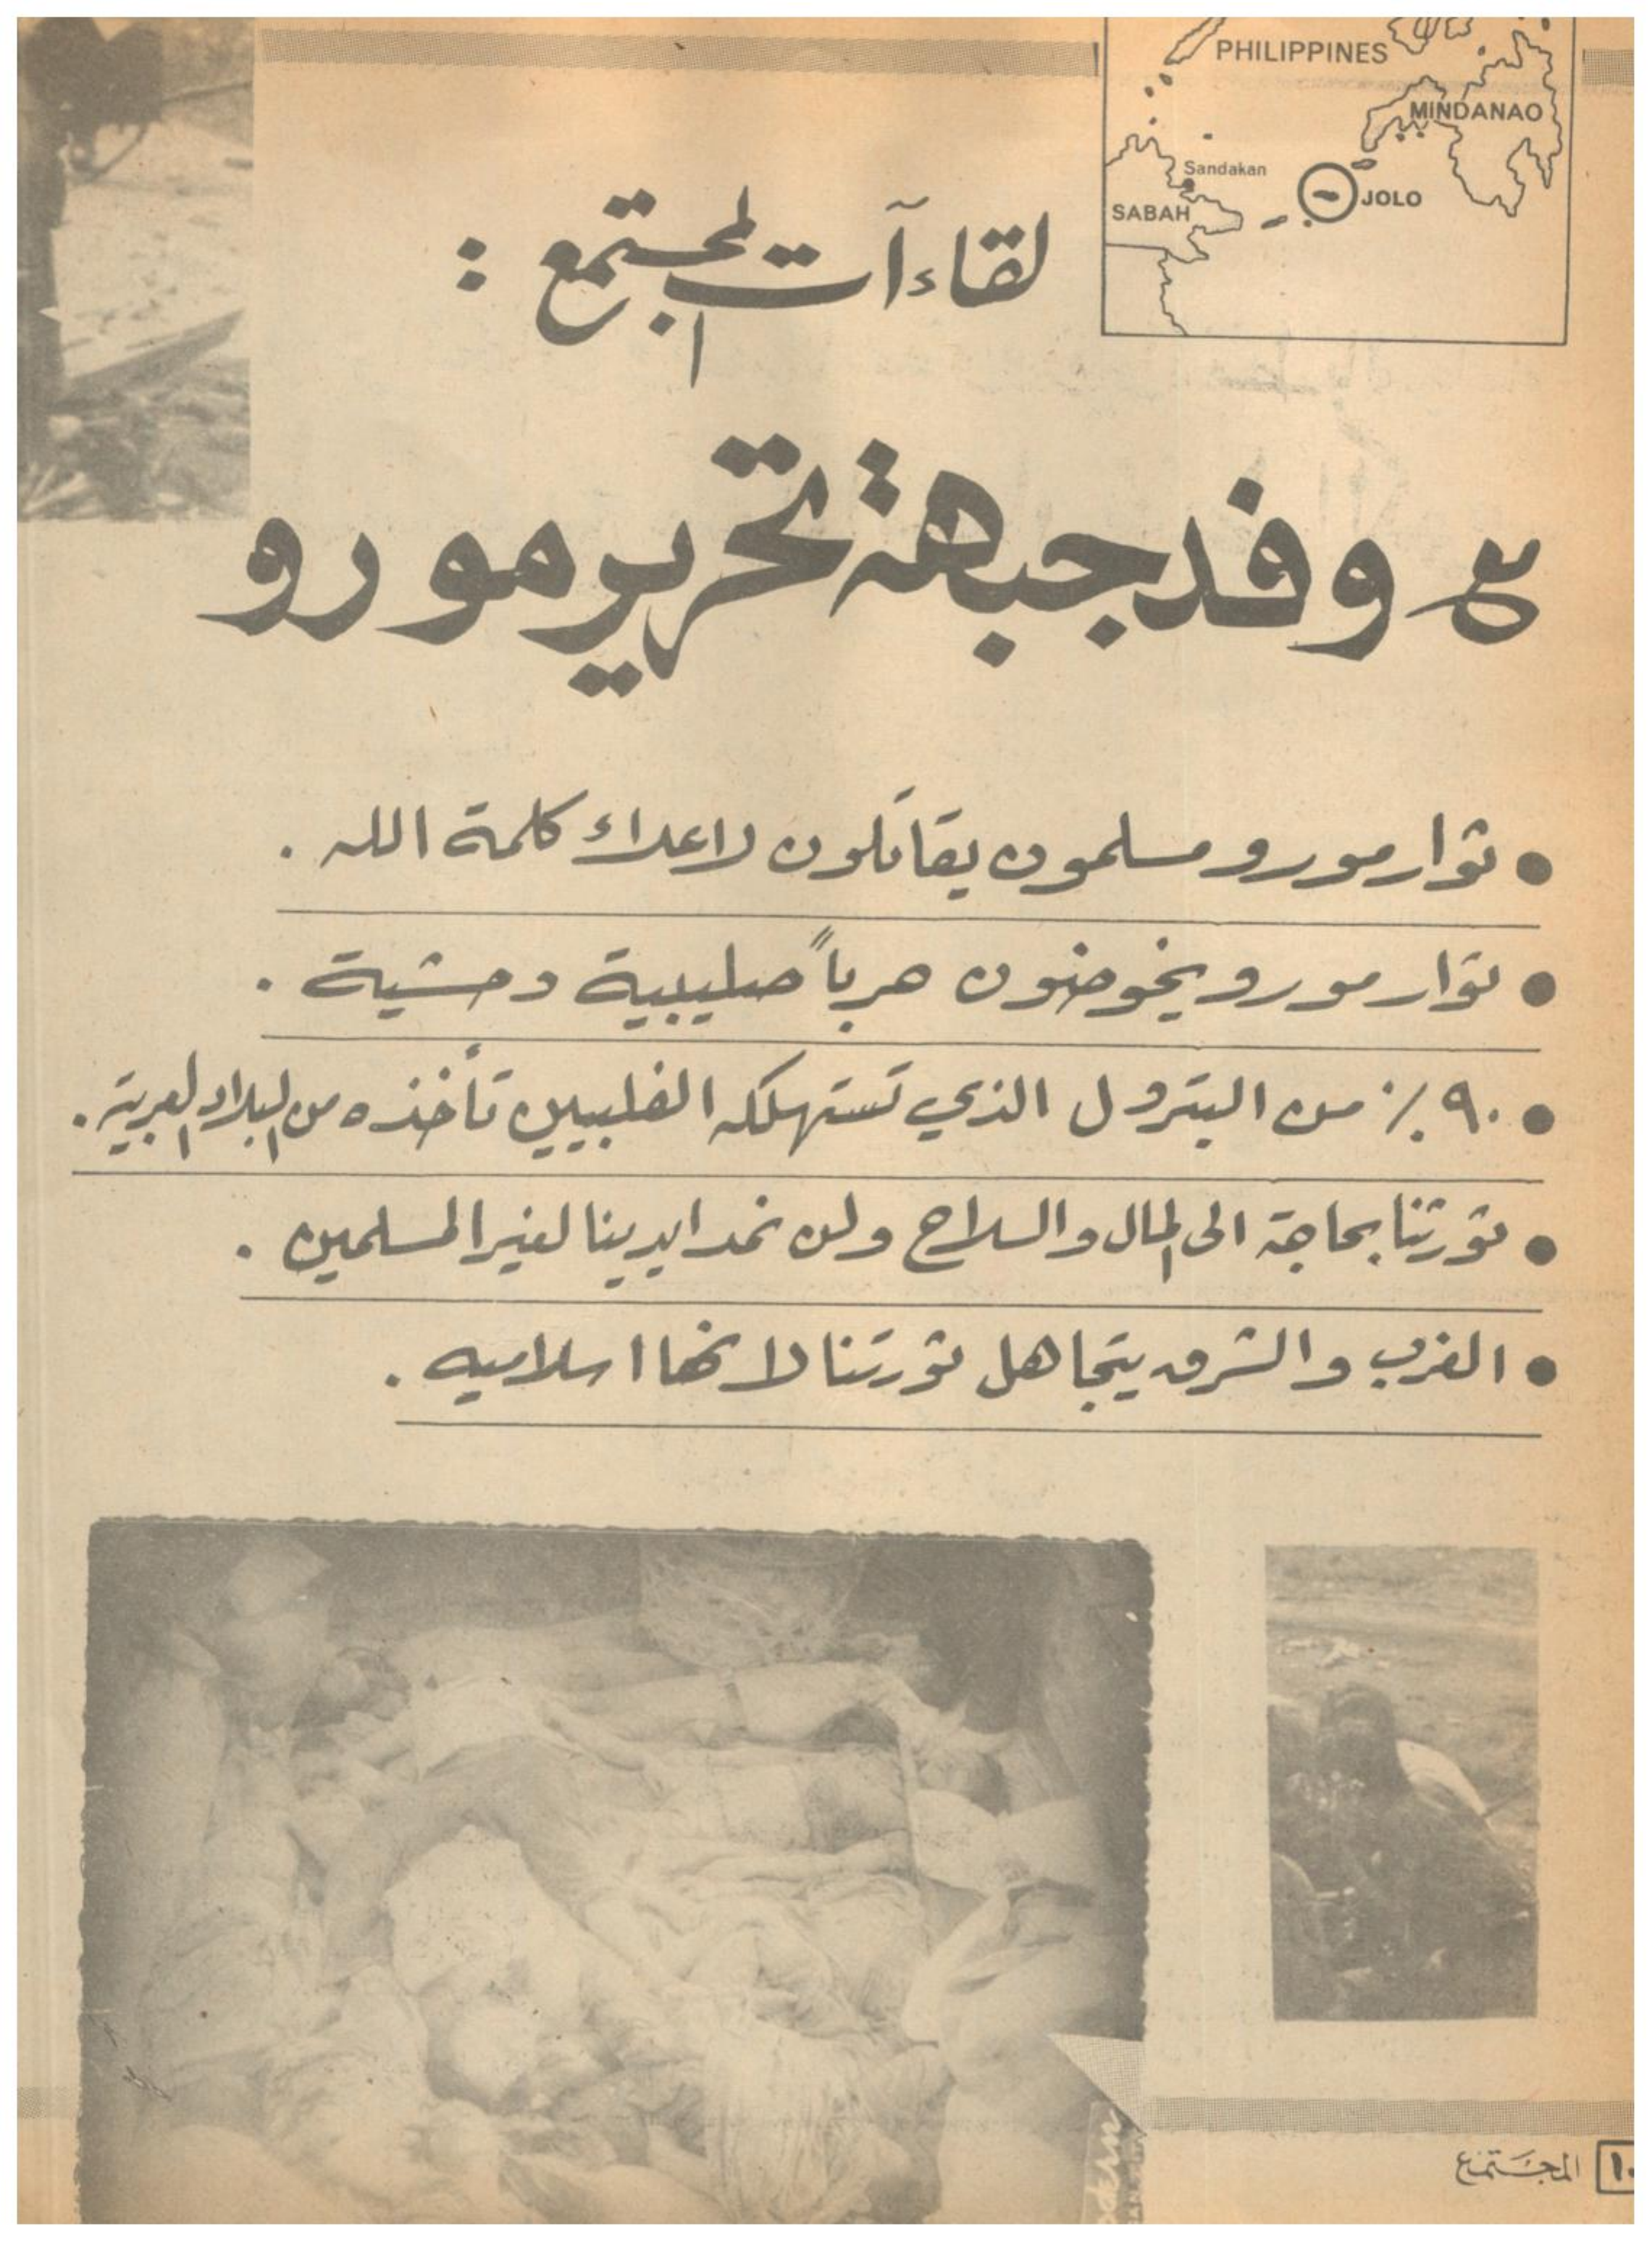 PHILIPPINES
MINDANAO
Sandakan
JOLO
SABAH
لقاءآت المجتمع :
مع وفد جبهة تحرير مورو
● ثوار مورو مسلمون يقاتلون لاعلاء كلمة الله .
● ثوار مورو يخوضون حرباً صليبية وحشية .
● ٩٠٪ من البترول الذي تستهلكه الفلبيين تأخذه من البلاد العربية .
● ثورتنا بحاجة الى المال والسلاح ولن نمد ايدينا لغير المسلمين .
● الغرب والشرق يتجاهل ثورتنا لانها اسلاميه .
١٠ المجتمع